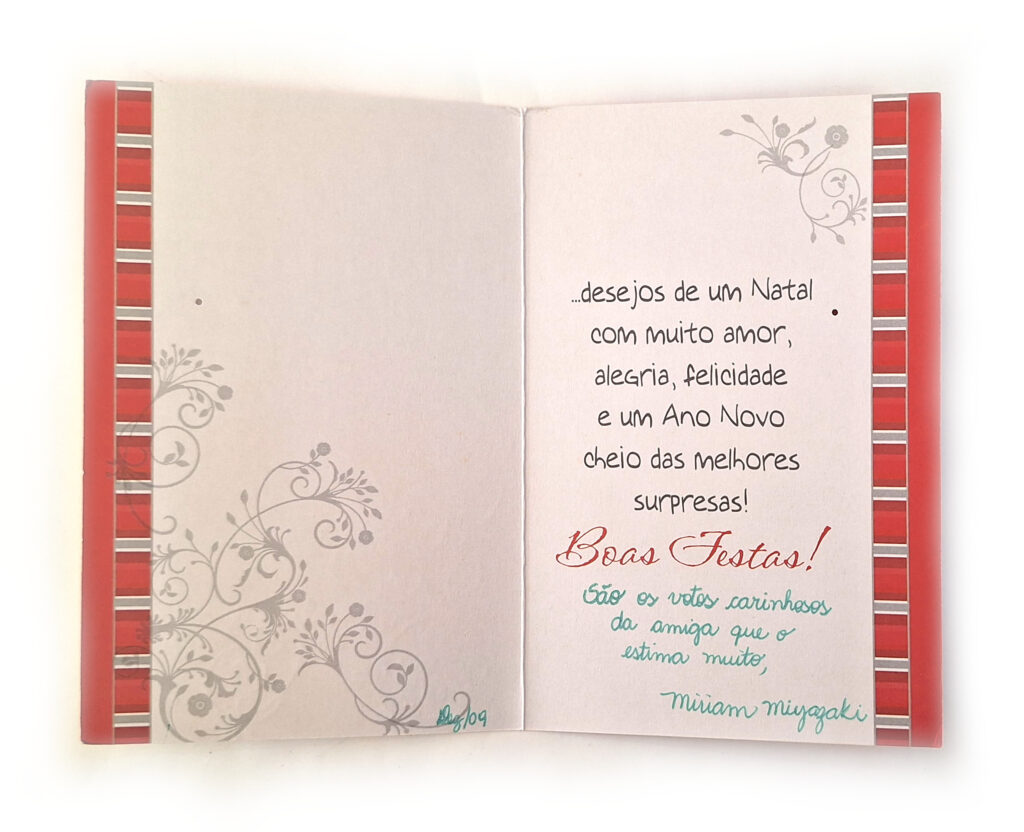 Dez/09
...desejos de um Natal
com muito amor,
alegria, felicidade
e um Ano Novo
cheio das melhores
surpresas!
Boas Festas!
São os votos carinhosos
da amiga que o
estima muito,
Miriam Miyazaki